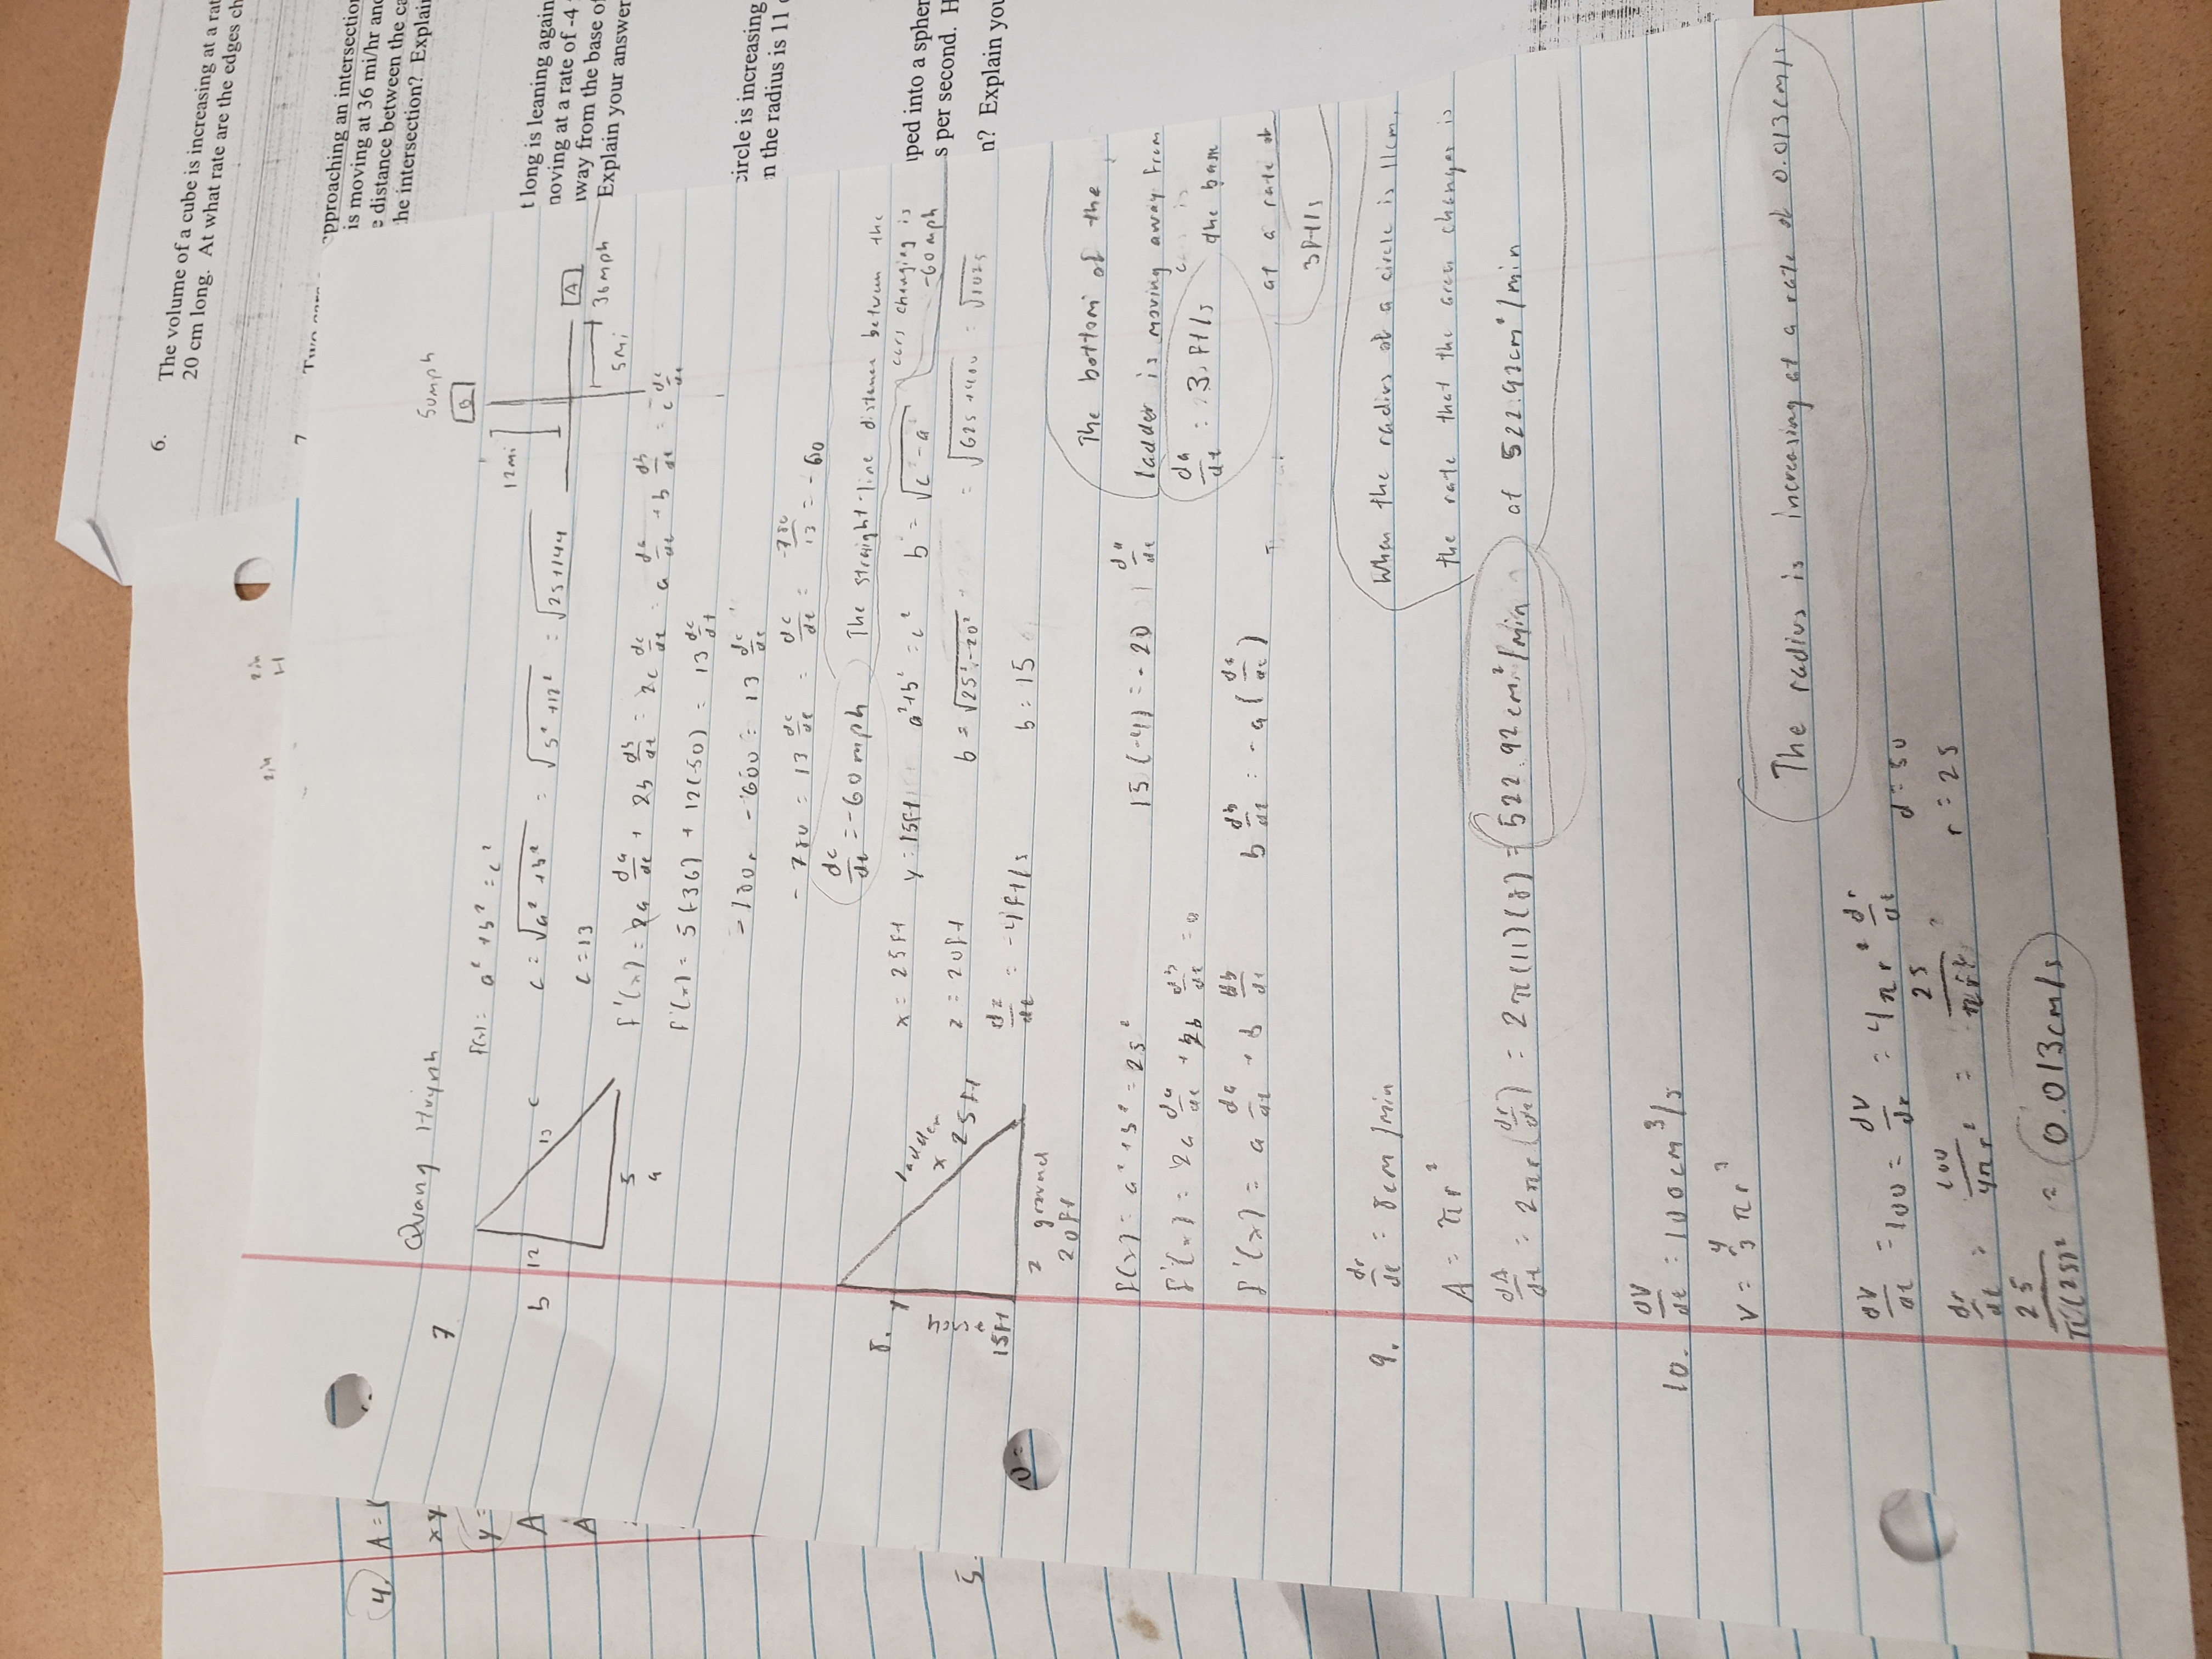 6. The volume of a cube is increasing at a rat
20 cm long. At what rate are the edges ch
7
Two cars
approaching an intersection
is moving at 36 mi/hr and
e distance between the ca
the intersection? Explain
t long is leaning again
moving at a rate of -4
away from the base of
Explain your answer
circle is increasing
n the radius is 11
ped into a spher
s per second. H
n? Explain you
4. A =
xy
y =
A
A
5.
2in 2in
Quang Huynh
7
b 12 13 c
5
a
f(x) = a² + b² = c²
c = √a² + b² = √5² + 12² = √25+144
c = 13
50mph
B
12mi
A
36mph
5mi
f'(x) = 2a da/dt + 2b db/dt = 2c dc/dt = a da/dt + b db/dt = c dc/dt
f'(x) = 5(-36) + 12(-50) = 13 dc/dt
-180 - 600 = 13 dc/dt
-780 = 13 dc/dt = dc/dt = -780/13 = -60
dc/dt = -60 mph The straight-line distance between the
cars changing is
-60 mph
8. y
15ft
ladder
x 25ft
z ground
20ft
x = 25ft y = 15ft a²+b² = c² b = √c² - a²
z = 20ft b = √25² - 20² = √625 + 400 = √1025
dz/dt = -4ft/s b = 15
f(x) = a² + b² = 25² 15(-4) = -20 da/dt
f'(x) = 2a da/dt + 2b db/dt = 0
f'(x) = a da/dt + b db/dt b db/dt = -a (da/dt)
The bottom of the
ladder is moving away from
da/dt = 3 ft/s the base
at a rate of
3ft/s
9. dr/dt = 8cm/min
A = πr²
dA/dt = 2πr(dr/dt) = 2π(11)(8) = 522.92cm²/min
When the radius of a circle is 11cm,
the rate that the area changes is
at 522.92cm²/min
10. dV/dt = 100cm³/s
V = 4/3 πr³
The radius is increasing at a rate of 0.013cm/s
dV/dt = 100 = dV/dr = 4πr² dr/dt
d = 50
dr/dt = 100/4πr² = 25/πr²
r = 25
25/π(25)² = 0.013cm/s